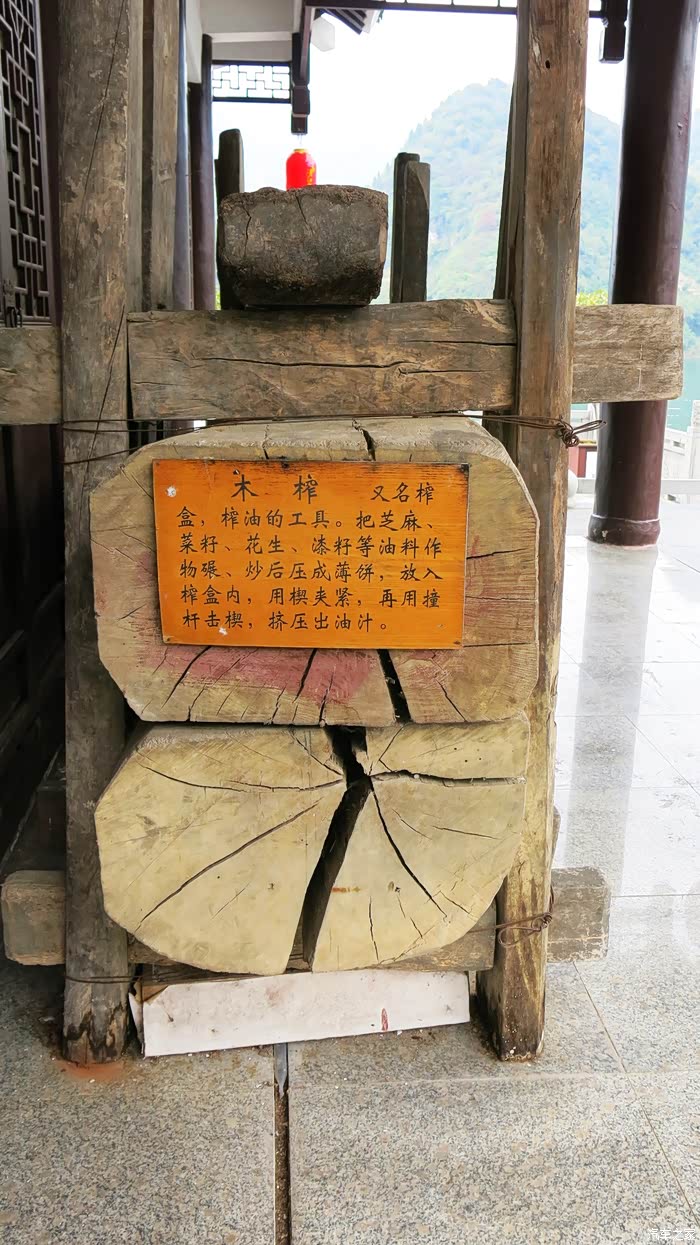 木 榨 又名榨
盒，榨油的工具。把芝麻、
菜籽、花生、漆籽等油料作
物碾、炒后压成薄饼，放入
榨盒内，用楔夹紧，再用撞
杆击楔，挤压出油汁。
汽车之家